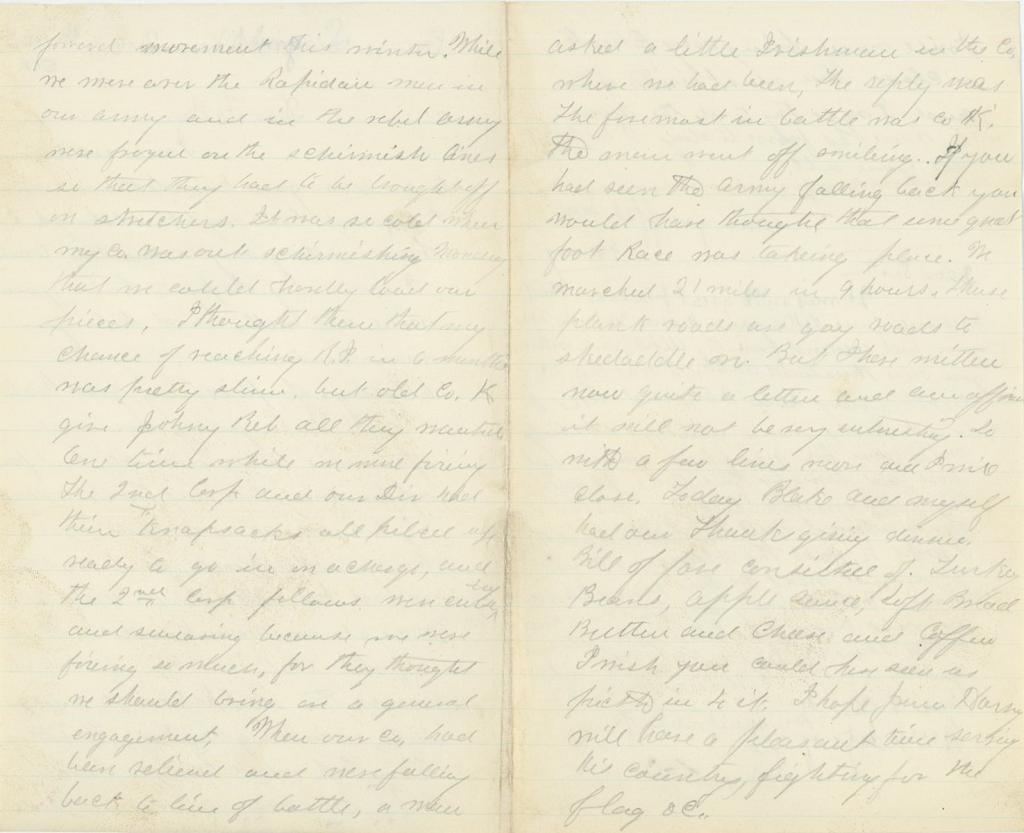 forward movement this winter. While
we were over the Rapidan men in
our army and in the rebel army
were frozen on the schirmish lines
so that they had to be brought off
on stretchers. It was so cold when
my Co. was out schirmishing Monday
that we could hardly load our
pieces, I thought then that my
chance of reaching R.I. in 6 months
was pretty slim, but old Co. K
give Johny Reb all they wanted
One time while we were firing
the 2nd Corp and our Div had
their Knapsacks all piled up
ready to go in on a charge, and
the 2nd Corp fellows were
and swearing because we were
firing so much, for they thought
we should bring on a general
engagement, When our Co, had
been relieved and were falling
back to line of battle, a man
asked a little Irishman in the Co,
where we had been, The reply was
The foremost in battle was Co "K".
The man went off smiling. If you
had seen the army falling back you
would have thought that some great
foot Race was taking place. We
marched 21 miles in 9 hours. These
plank roads are gay roads to
skedaddle on. But I have written
now quite a letter and am affraid
it will not be very interesting. So
with a few lines more and I will
close. Today Blake and myself
had our Thanksgiving dinner.
Bill of fare consisted of. Turkey
Beans, apple sauce, Soft Bread
Butter and Cheese and Coffee
I wish you could have seen us
pitch in to it. I hope
will have a pleasant time serving
his country, fighting for the
flag &C..